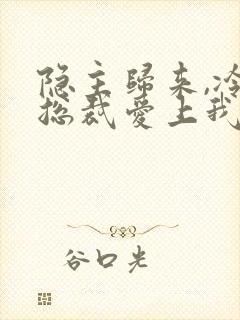 隐主歸来,冷
总裁爱上我
谷口光